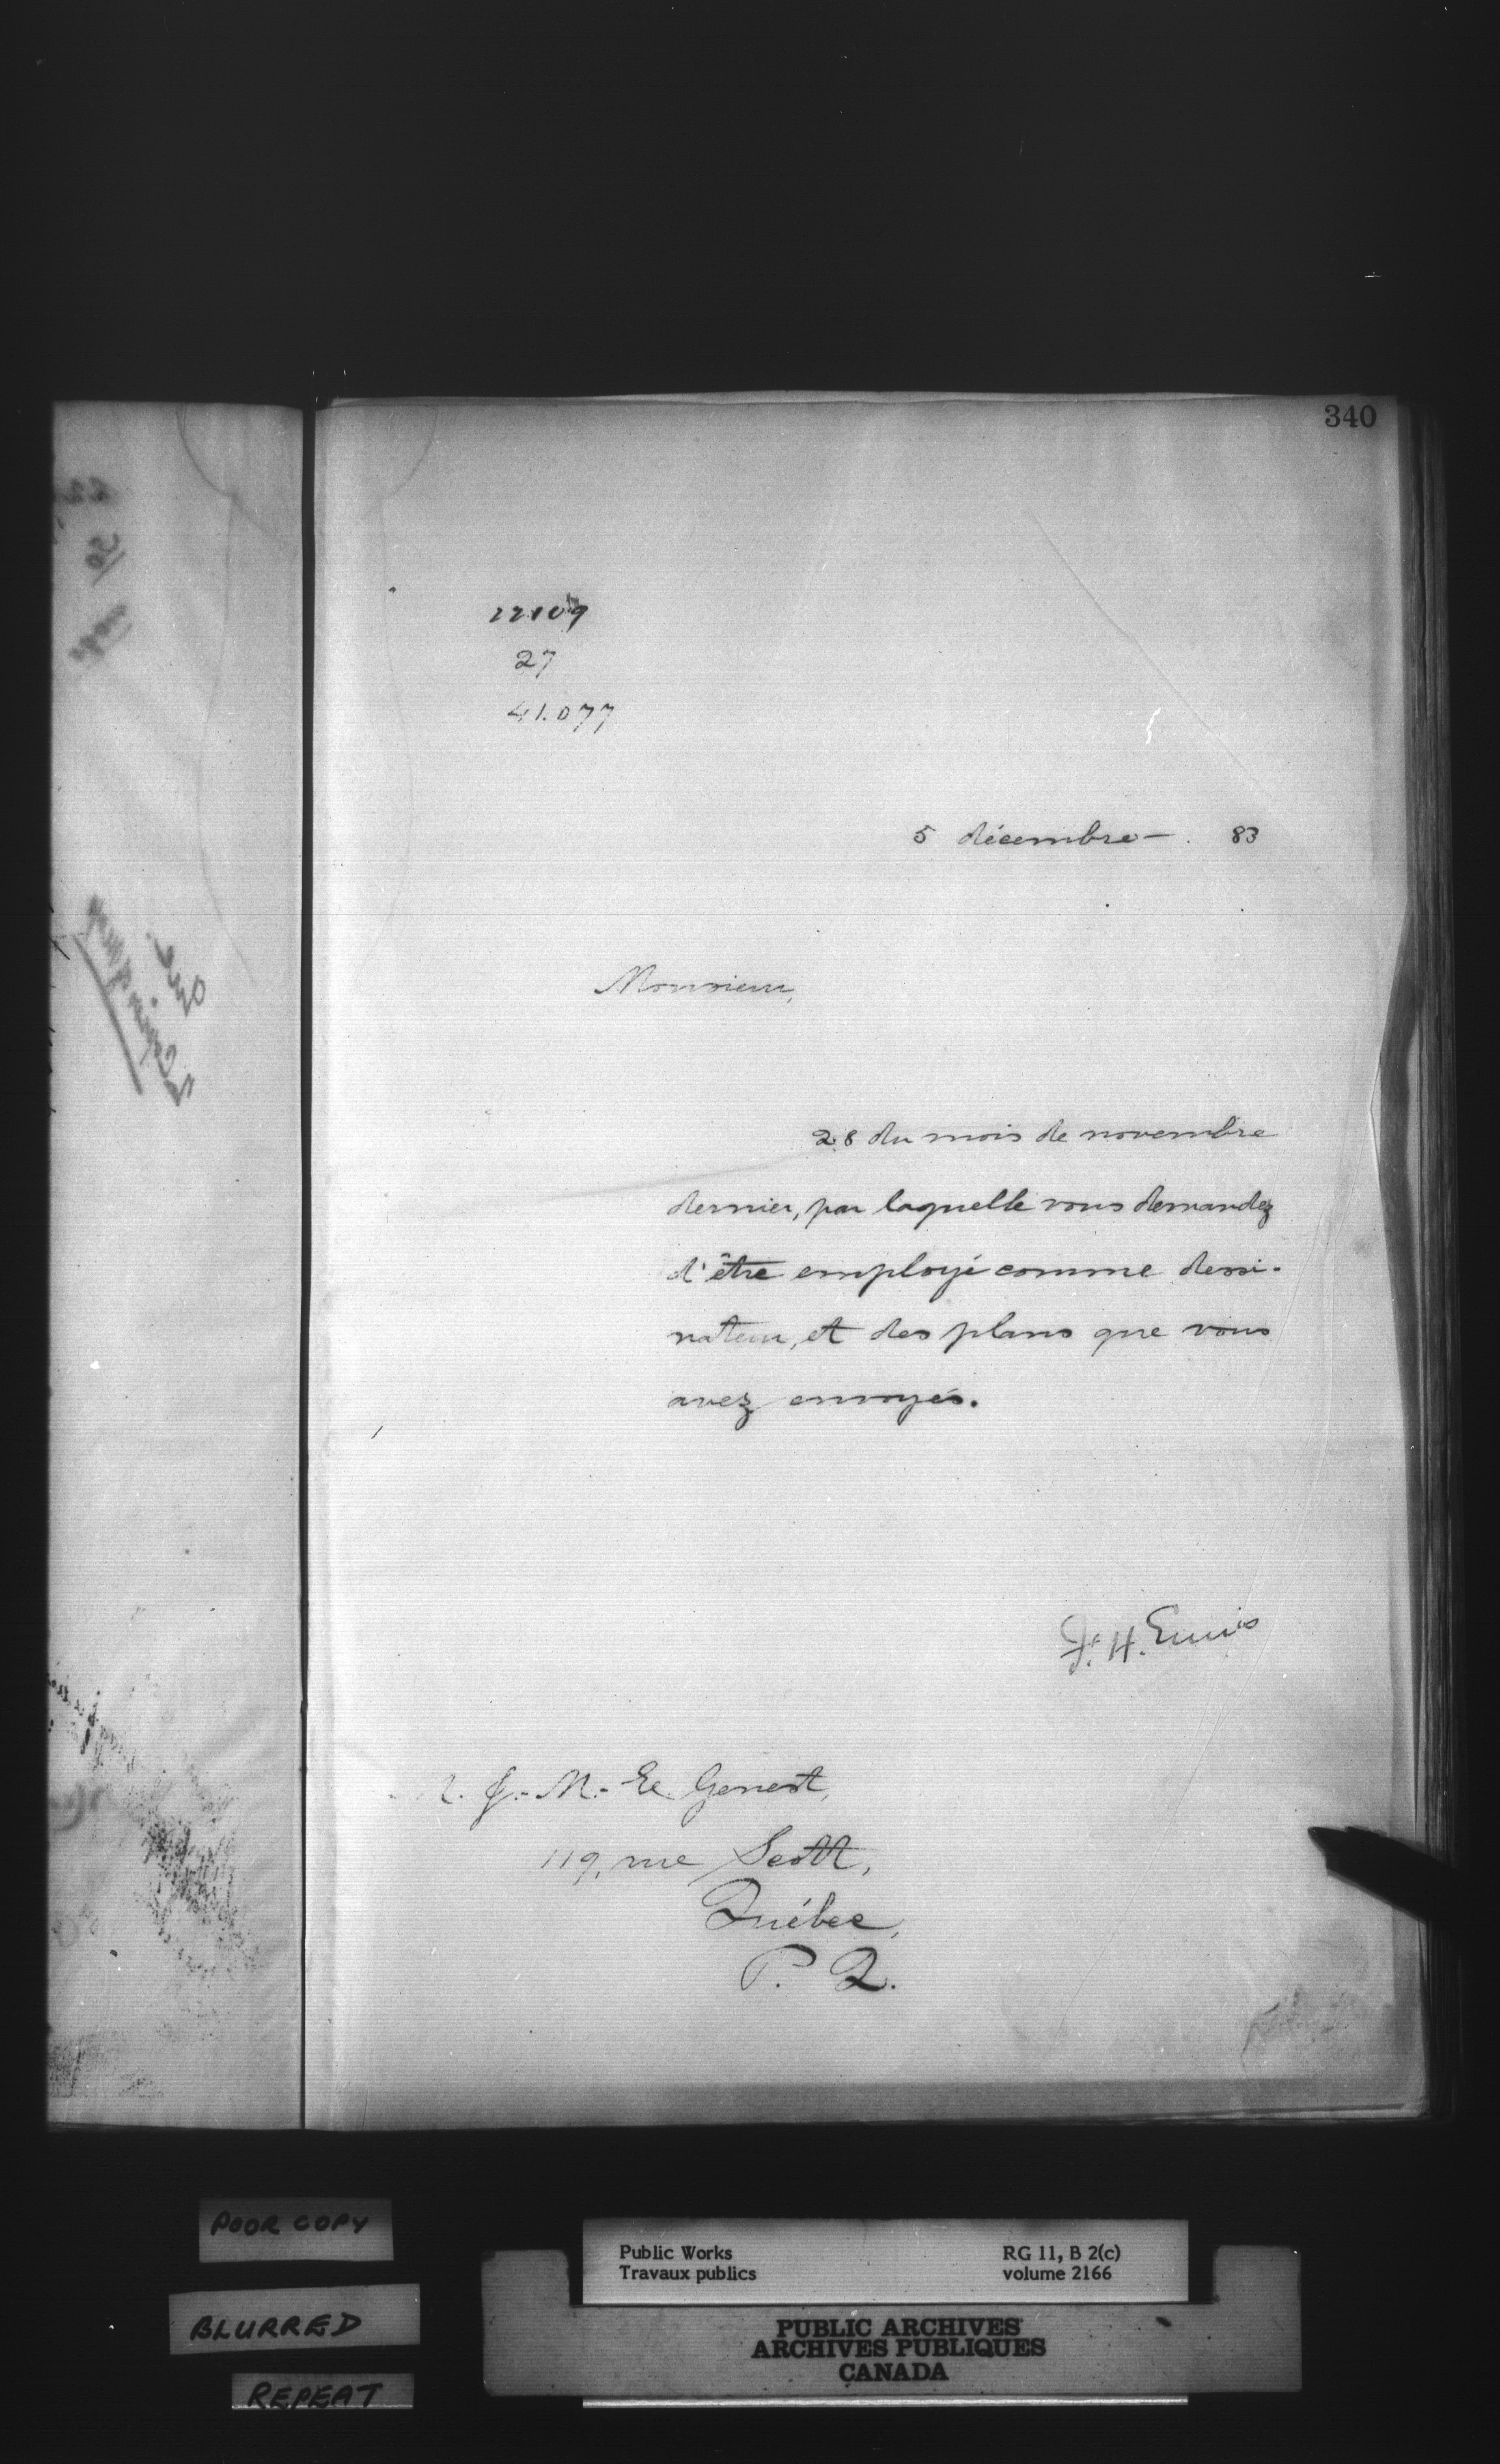 340
22109
27
41.077
5 décembre — . 83
Monsieur,
28 du mois de novembre
dernier, par laquelle vous demandez
d'être employé comme dessi-
nateur, et des plans que vous
avez envoyés.
F. H. Ennis
M. J.-M.- Ee. Genest,
119, rue Scott,
Québec,
P. Q.
POOR COPY
BLURRED
REPEAT
Public Works
Travaux publics
RG 11, B 2(c)
volume 2166
PUBLIC ARCHIVES
ARCHIVES PUBLIQUES
CANADA